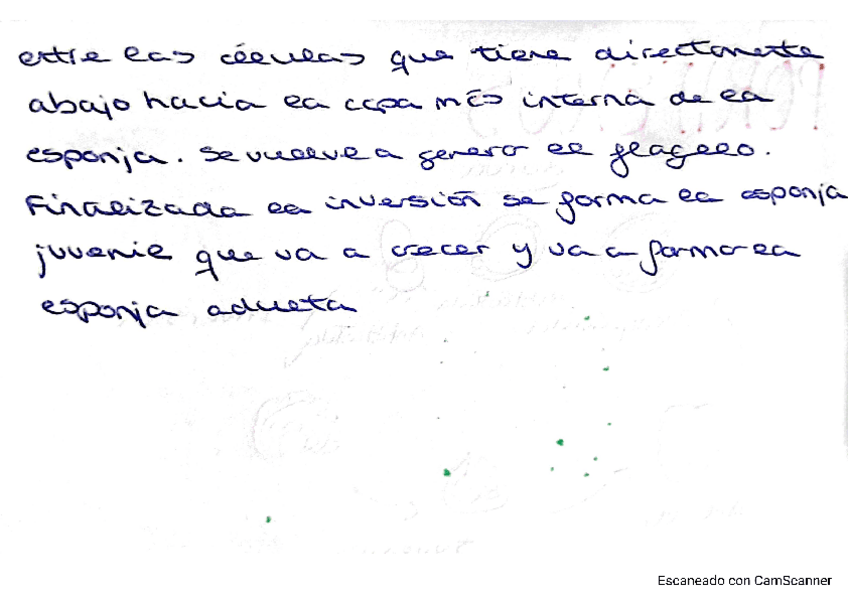 entre las células que tiene directamente
abajo hacia la capa más interna de la
esponja. Se vuelve a generar el flagelo.
Finalizada la inversión se forma la esponja
juvenil que va a crecer y va a formar la
esponja adulta
Escaneado con CamScanner